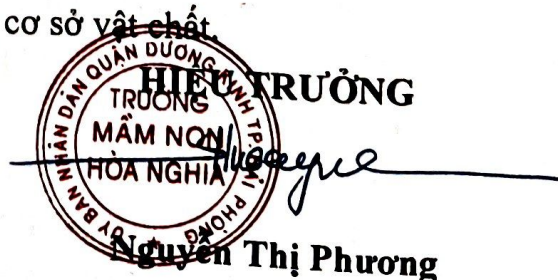 cơ sở vật chất.
HIỆU TRƯỞNG
ỦY BAN NHÂN DÂN QUẬN DƯƠNG KINH TP. HẢI PHÒNG
TRƯỜNG
MẦM NON
HÒA NGHĨA
Nguyễn Thị Phương